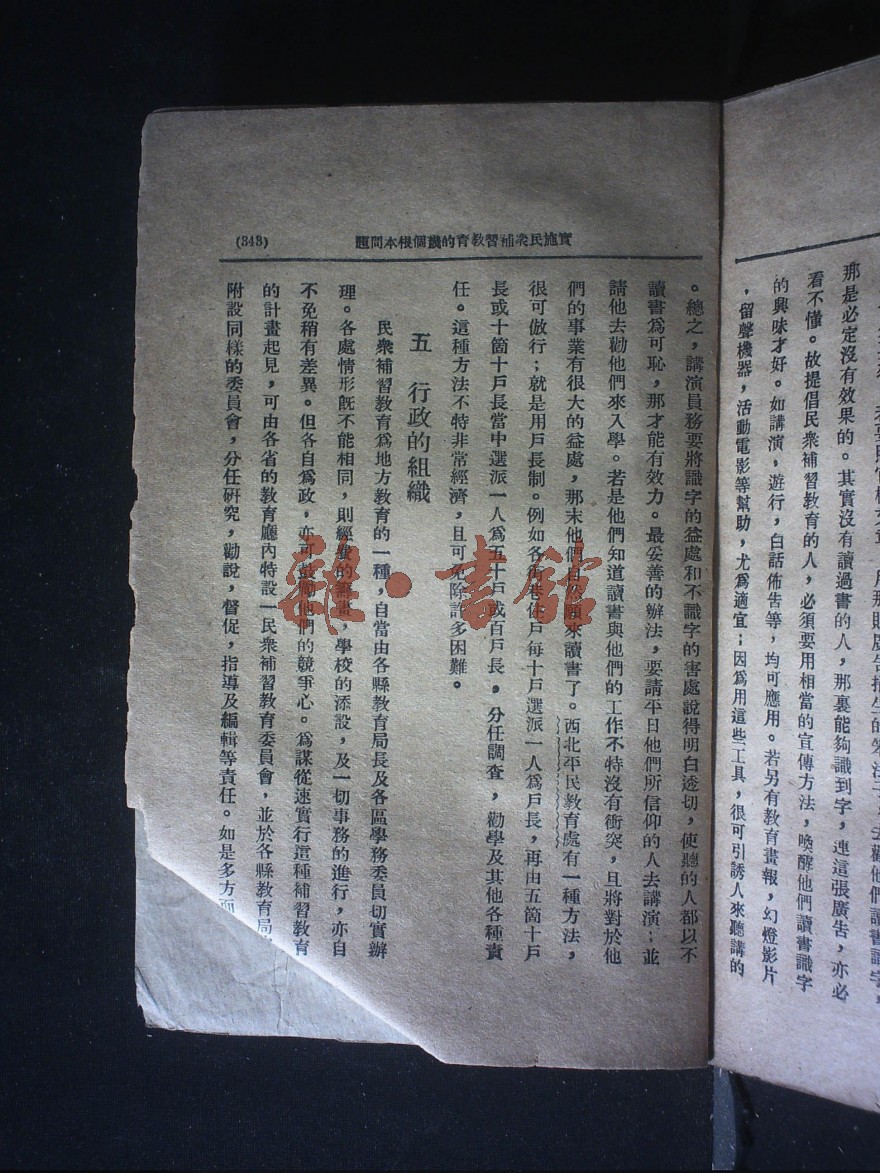 那是必定沒有效果的。其實沒有讀過書的人，那裏能夠識到字，連這張廣告，亦必
看不懂。故提倡民衆補習教育的人，必須要用相當的宣傳方法，喚醒他們讀書識字
的興味才好。如講演，遊行，白話佈告等，均可應用。若另有教育畫報，幻燈影片
，留聲機器，活動電影等幫助，尤爲適宜；因爲用這些工具，很可引誘人來聽講的
實施民衆補習教育的幾個根本問題
(343)
。總之，講演員務要將識字的益處和不識字的害處說得明白透切，使聽的人都以不
讀書爲可恥，那才能有效力。最妥善的辦法，要請平日他們所信仰的人去講演；並
請他去勸他們來入學。若是他們知道讀書與他們的工作不特沒有衝突，且將對於他
們的事業有很大的益處，那末他們自然願來讀書了。西北平民教育處有一種方法，
很可倣行；就是用戶長制。例如各街巷住戶每十戶選派一人爲戶長，再由五箇十戶
長或十箇十戶長當中選派一人爲五十戶或百戶長，分任調查，勸學及其他各種責
任。這種方法不特非常經濟，且可免除許多困難。
五　行政的組織
民衆補習教育爲地方教育的一種，自當由各縣教育局長及各區學務委員切實辦
理。各處情形既不能相同，則經費的籌畫，學校的添設，及一切事務的進行，亦自
不免稍有差異。但各自爲政，亦可鼓勵他們的競爭心。爲謀從速實行這種補習教育
的計畫起見，可由各省的教育廳內特設一民衆補習教育委員會，並於各縣教育局
附設同樣的委員會，分任研究，勸說，督促，指導及編輯等責任。如是多方面
雜·書館